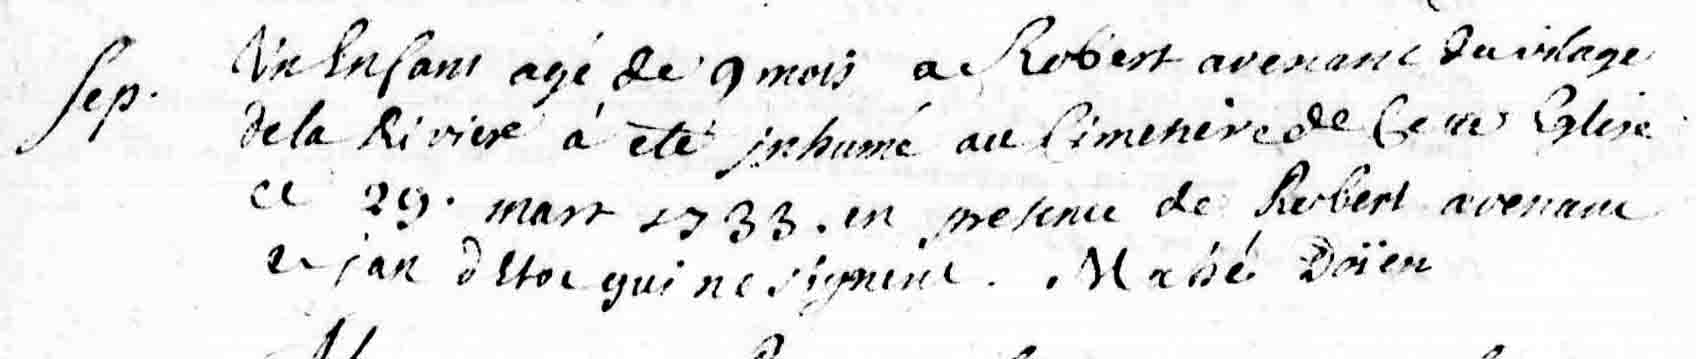 Sep. Un Enfant agé de 9 mois a Robert avenant du vilage
de la Riviere à eté inhumé au Cimetiere de Cette Eglise
ce 29. mars 1733. en presence de Robert avenant
et jan qui ne signent. Mahé Doïen